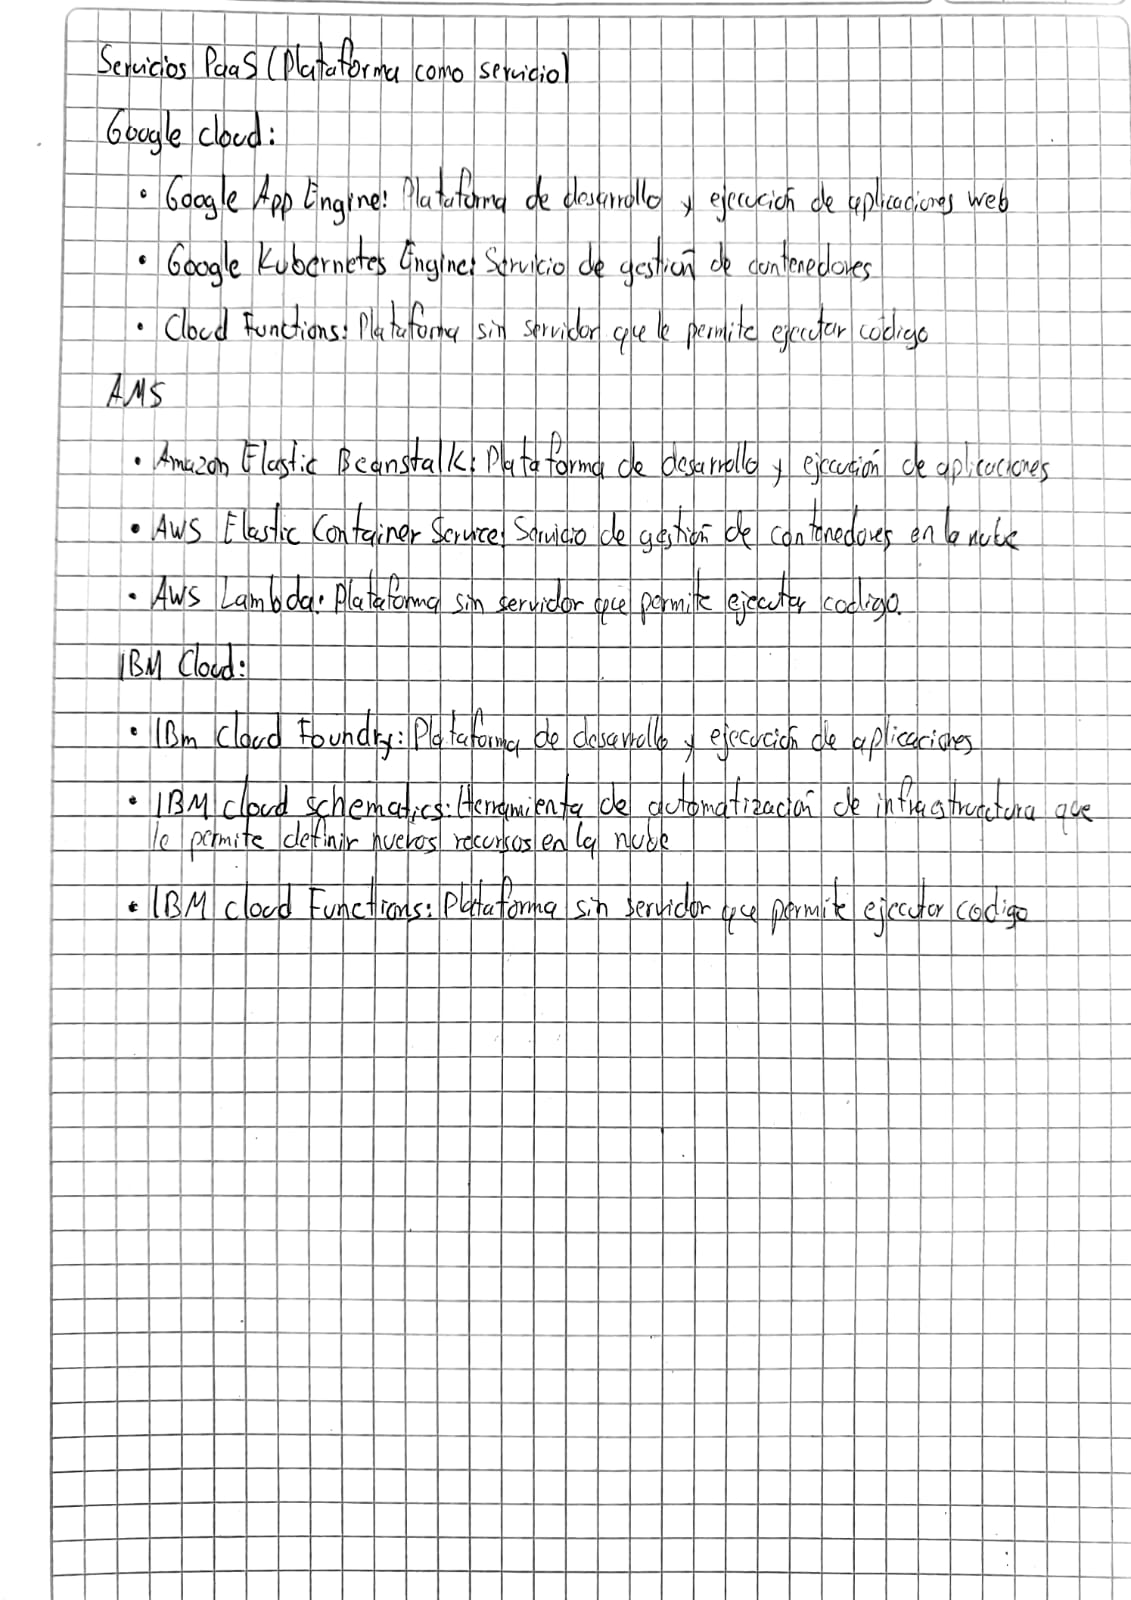 Servicios PaaS (Plataforma como servicio)
Google cloud:
• Google App Engine: Plataforma de desarrollo y ejecución de aplicaciones web
• Google Kubernetes Engine: Servicio de gestión de contenedores
• Cloud Functions: Plataforma sin servidor que le permite ejecutar codigo
AMS
• Amazon Elastic Beanstalk: Plataforma de desarrollo y ejecución de aplicaciones
• AWS Elastic Container Service: Servicio de gestión de contenedores en la nube
• AWS Lambda: Plataforma sin servidor que permite ejecutar codigo.
IBM Cloud:
• IBm Cloud Foundry: Plataforma de desarrollo y ejecución de aplicaciones
• IBM cloud schematics: Herramienta de automatización de infraestructura que
le permite definir nuevos recursos en la nube
• IBM cloud Functions: Plataforma sin servidor que permite ejecutar codigo